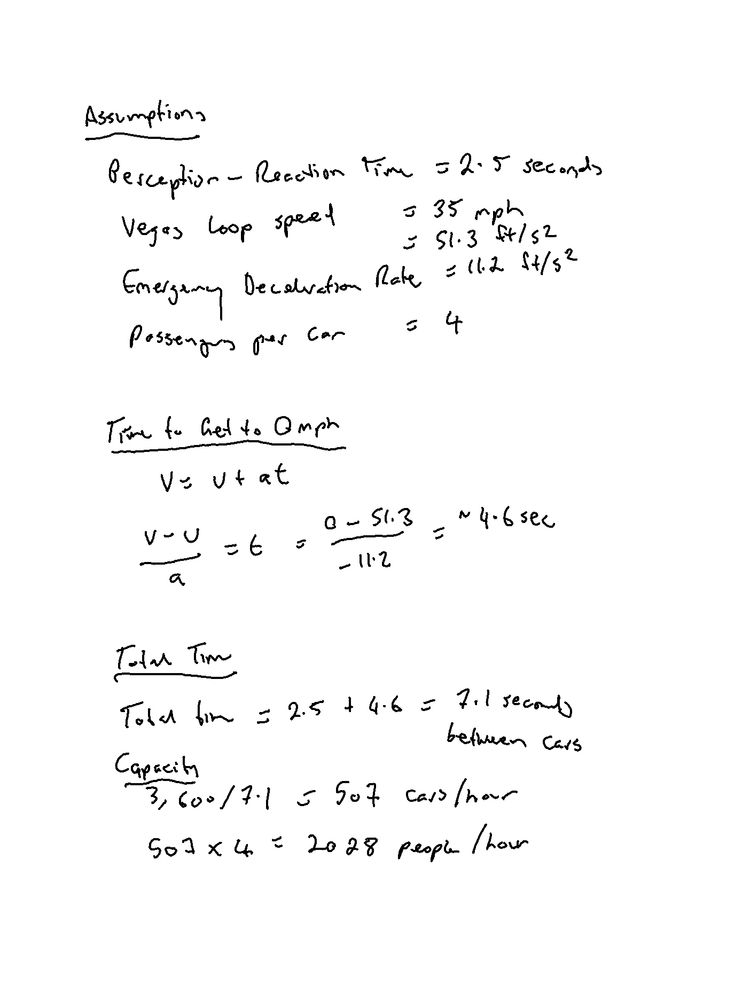 Assumptions
Perception - Reaction Time = 2.5 seconds
Vegas Loop speed = 35 mph
= 51.3 ft/s2
Emergency Deceleration Rate = 11.2 ft/s2
Passengers per car = 4
Time to Get to 0 mph
V = U + at
V-U/a = t = 0 - 51.3/-11.2 = ~4.6 sec
Total Time
Total time = 2.5 + 4.6 = 7.1 seconds
between cars
Capacity
3,600/7.1 = 507 cars/hour
507 x 4 = 2028 people/hour